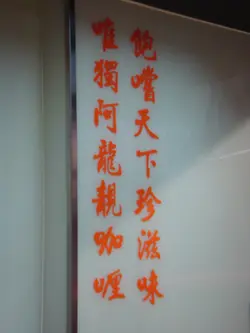 飽嚐天下珍滋味
唯獨阿龍靚咖喱